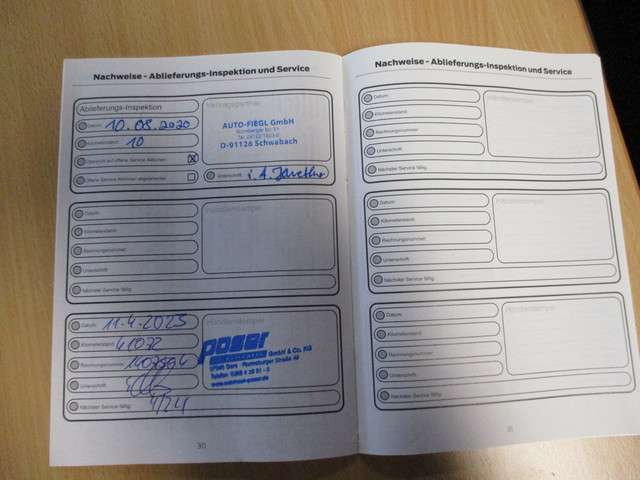 Nachweise - Ablieferungs-Inspektion und Service
Ablieferungs-Inspektion
Datum 10.08.2020
Kilometerstand 10
Übersicht auf offene Service Aktionen X
Offene Service Aktionen abgearbeitet
Vertragspartner
AUTO-FIEGL GmbH
D-91126 Schwabach
Unterschrift i.A.
Datum
Kilometerstand
Rechnungsnummer
Unterschrift
Nächster Service fällig
Händlerstempel
Datum 11-4-2023
Kilometerstand 41072
Rechnungsnummer
Unterschrift
Nächster Service fällig 4/24
Händlerstempel
poser
GmbH & Co. KG
30
Nachweise - Ablieferungs-Inspektion und Service
Datum
Kilometerstand
Rechnungsnummer
Unterschrift
Nächster Service fällig
Händlerstempel
Datum
Kilometerstand
Rechnungsnummer
Unterschrift
Nächster Service fällig
Händlerstempel
Datum
Kilometerstand
Rechnungsnummer
Unterschrift
Nächster Service fällig
Händlerstempel
31